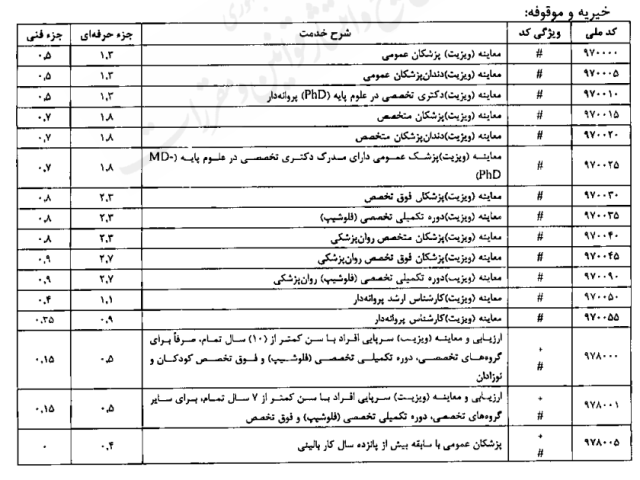 خیریه و موقوفه:
کد ملی ویژگی کد شرح خدمت جزء حرفه‌ای جزء فنی
۹۷۰۰۰۰ # معاینه (ویزیت) پزشکان عمومی ۱.۳ ۰.۵
۹۷۰۰۰۵ # معاینه (ویزیت)دندان‌پزشکان عمومی ۱.۳ ۰.۵
۹۷۰۰۱۰ # معاینه (ویزیت)دکتری تخصصی در علوم پایه (PhD) پروانه‌دار ۱.۳ ۰.۵
۹۷۰۰۱۵ # معاینه (ویزیت)پزشکان متخصص ۱.۸ ۰.۷
۹۷۰۰۲۰ # معاینه (ویزیت)دندان‌پزشکان متخصص ۱.۸ ۰.۷
۹۷۰۰۲۵ # معاینه (ویزیت)پزشک عمومی دارای مدرک دکتری تخصصی در علوم پایه (MD-
PhD) ۱.۸ ۰.۷
۹۷۰۰۳۰ # معاینه (ویزیت)پزشکان فوق تخصص ۲.۳ ۰.۸
۹۷۰۰۳۵ # معاینه (ویزیت)دوره تکمیلی تخصصی (فلوشیپ) ۲.۳ ۰.۸
۹۷۰۰۴۰ # معاینه (ویزیت)پزشکان متخصص روان‌پزشکی ۲.۳ ۰.۸
۹۷۰۰۴۵ # معاینه (ویزیت)پزشکان فوق تخصص روان‌پزشکی ۲.۷ ۰.۹
۹۷۰۰۹۰ # معاینه (ویزیت)دوره تکمیلی تخصصی (فلوشیپ) روان‌پزشکی ۲.۷ ۰.۹
۹۷۰۰۵۰ # معاینه (ویزیت)کارشناس ارشد پروانه‌دار ۱.۱ ۰.۴
۹۷۰۰۵۵ # معاینه (ویزیت)کارشناس پروانه‌دار ۰.۹ ۰.۳۵
۹۷۸۰۰۰ + # ارزیابی و معاینه (ویزیت) سرپایی افراد با سن کمتر از (۱۰) سال تمام، صرفاً برای
گروه‌های تخصصی، دوره تکمیلی تخصصی (فلوشیپ) و فوق تخصص کودکان و
نوزادان ۰.۵ ۰.۱۵
۹۷۸۰۰۱ + # ارزیابی و معاینه (ویزیت) سرپایی افراد با سن کمتر از ۷ سال تمام، برای سایر
گروه‌های تخصصی، دوره تکمیلی تخصصی (فلوشیپ) و فوق تخصص ۰.۵ ۰.۱۵
۹۷۸۰۰۵ + # پزشکان عمومی با سابقه بیش از پانزده سال کار بالینی ۰.۴ ۰